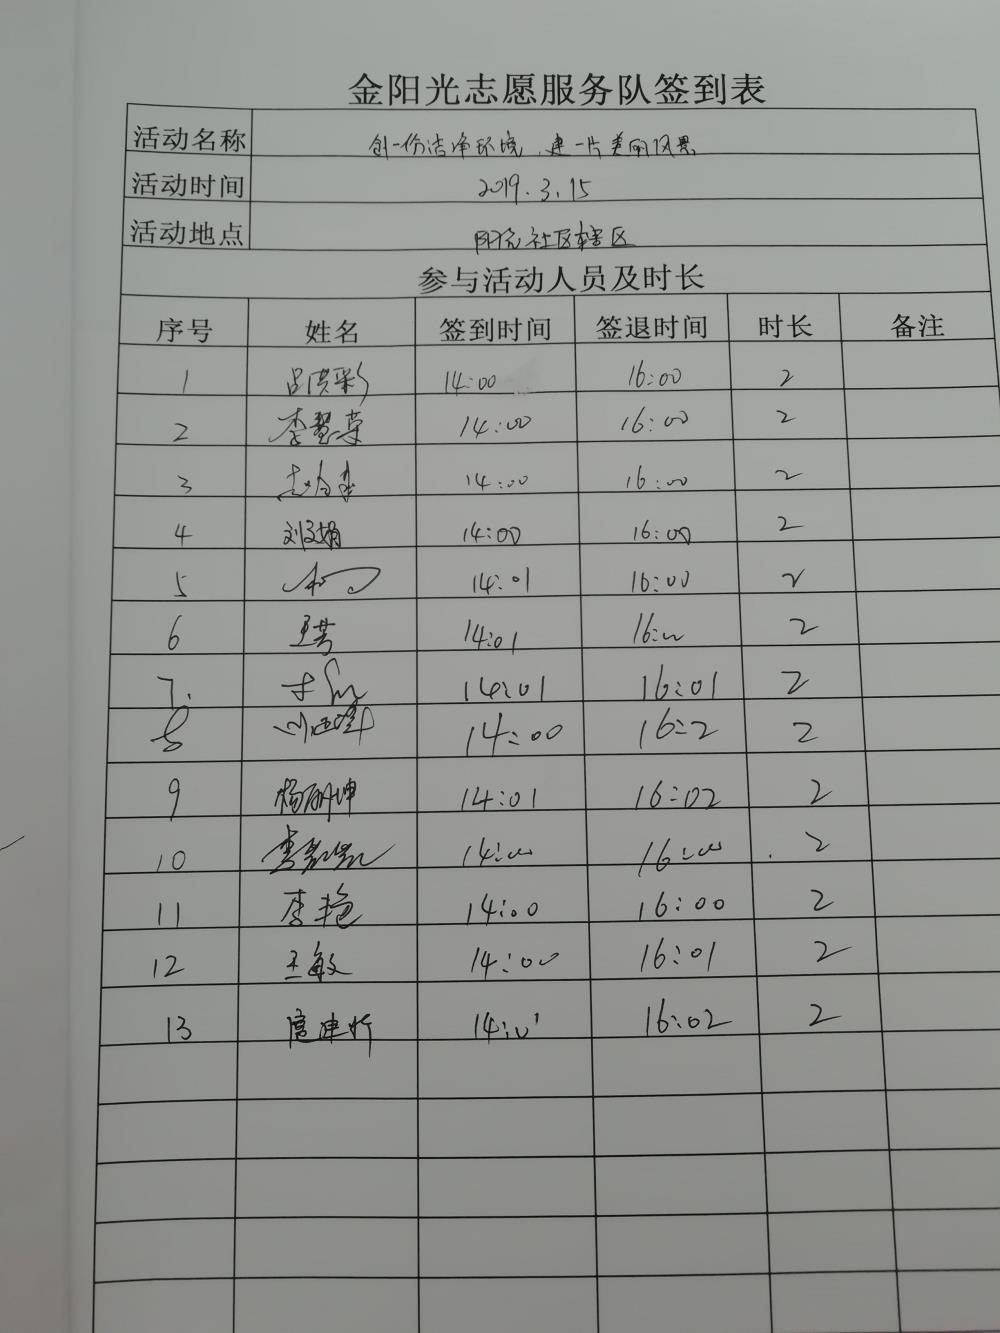 金阳光志愿服务队签到表
活动名称 创一份洁净环境、建一片美丽风景
活动时间 2019.3.15
活动地点 社区辖区
参与活动人员及时长
序号 姓名 签到时间 签退时间 时长 备注
1 吕洪彩 14:00 16:00 2
2 李慧荣 14:00 16:00 2
3 14:00 16:00 2
4 刘文娟 14:00 16:00 2
5 14:01 16:00 2
6 王芸 14:01 16:00 2
7. 14:01 16:01 2
8 14:00 16:2 2
9 杨丽坤 14:01 16:02 2
10 李 14:00 16:00 2
11 李艳 14:00 16:00 2
12 王敏 14:00 16:01 2
13 14:01 16:02 2